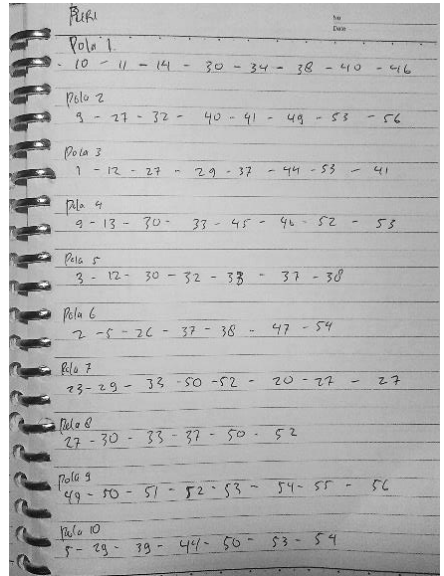 PURI
No
Date
Pola 1.
10 - 11 - 14 - 30 - 34 - 38 - 40 - 46
Pola 2
9 - 27 - 32 - 40 - 41 - 49 - 53 - 56
Pola 3
1 - 12 - 27 - 29 - 37 - 44 - 53 - 41
Pola 4
9 - 13 - 30 - 33 - 45 - 46 - 52 - 53
Pola 5
3 - 12 - 30 - 32 - 33 - 37 - 38
Pola 6
2 - 5 - 26 - 37 - 38 - 47 - 54
Pola 7
23 - 29 - 33 - 50 - 52 - 20 - 27 - 27
Pola 8
27 - 30 - 33 - 37 - 50 - 52
Pola 9
49 - 50 - 51 - 52 - 53 - 54 - 55 - 56
Pola 10
5 - 29 - 39 - 44 - 50 - 53 - 54